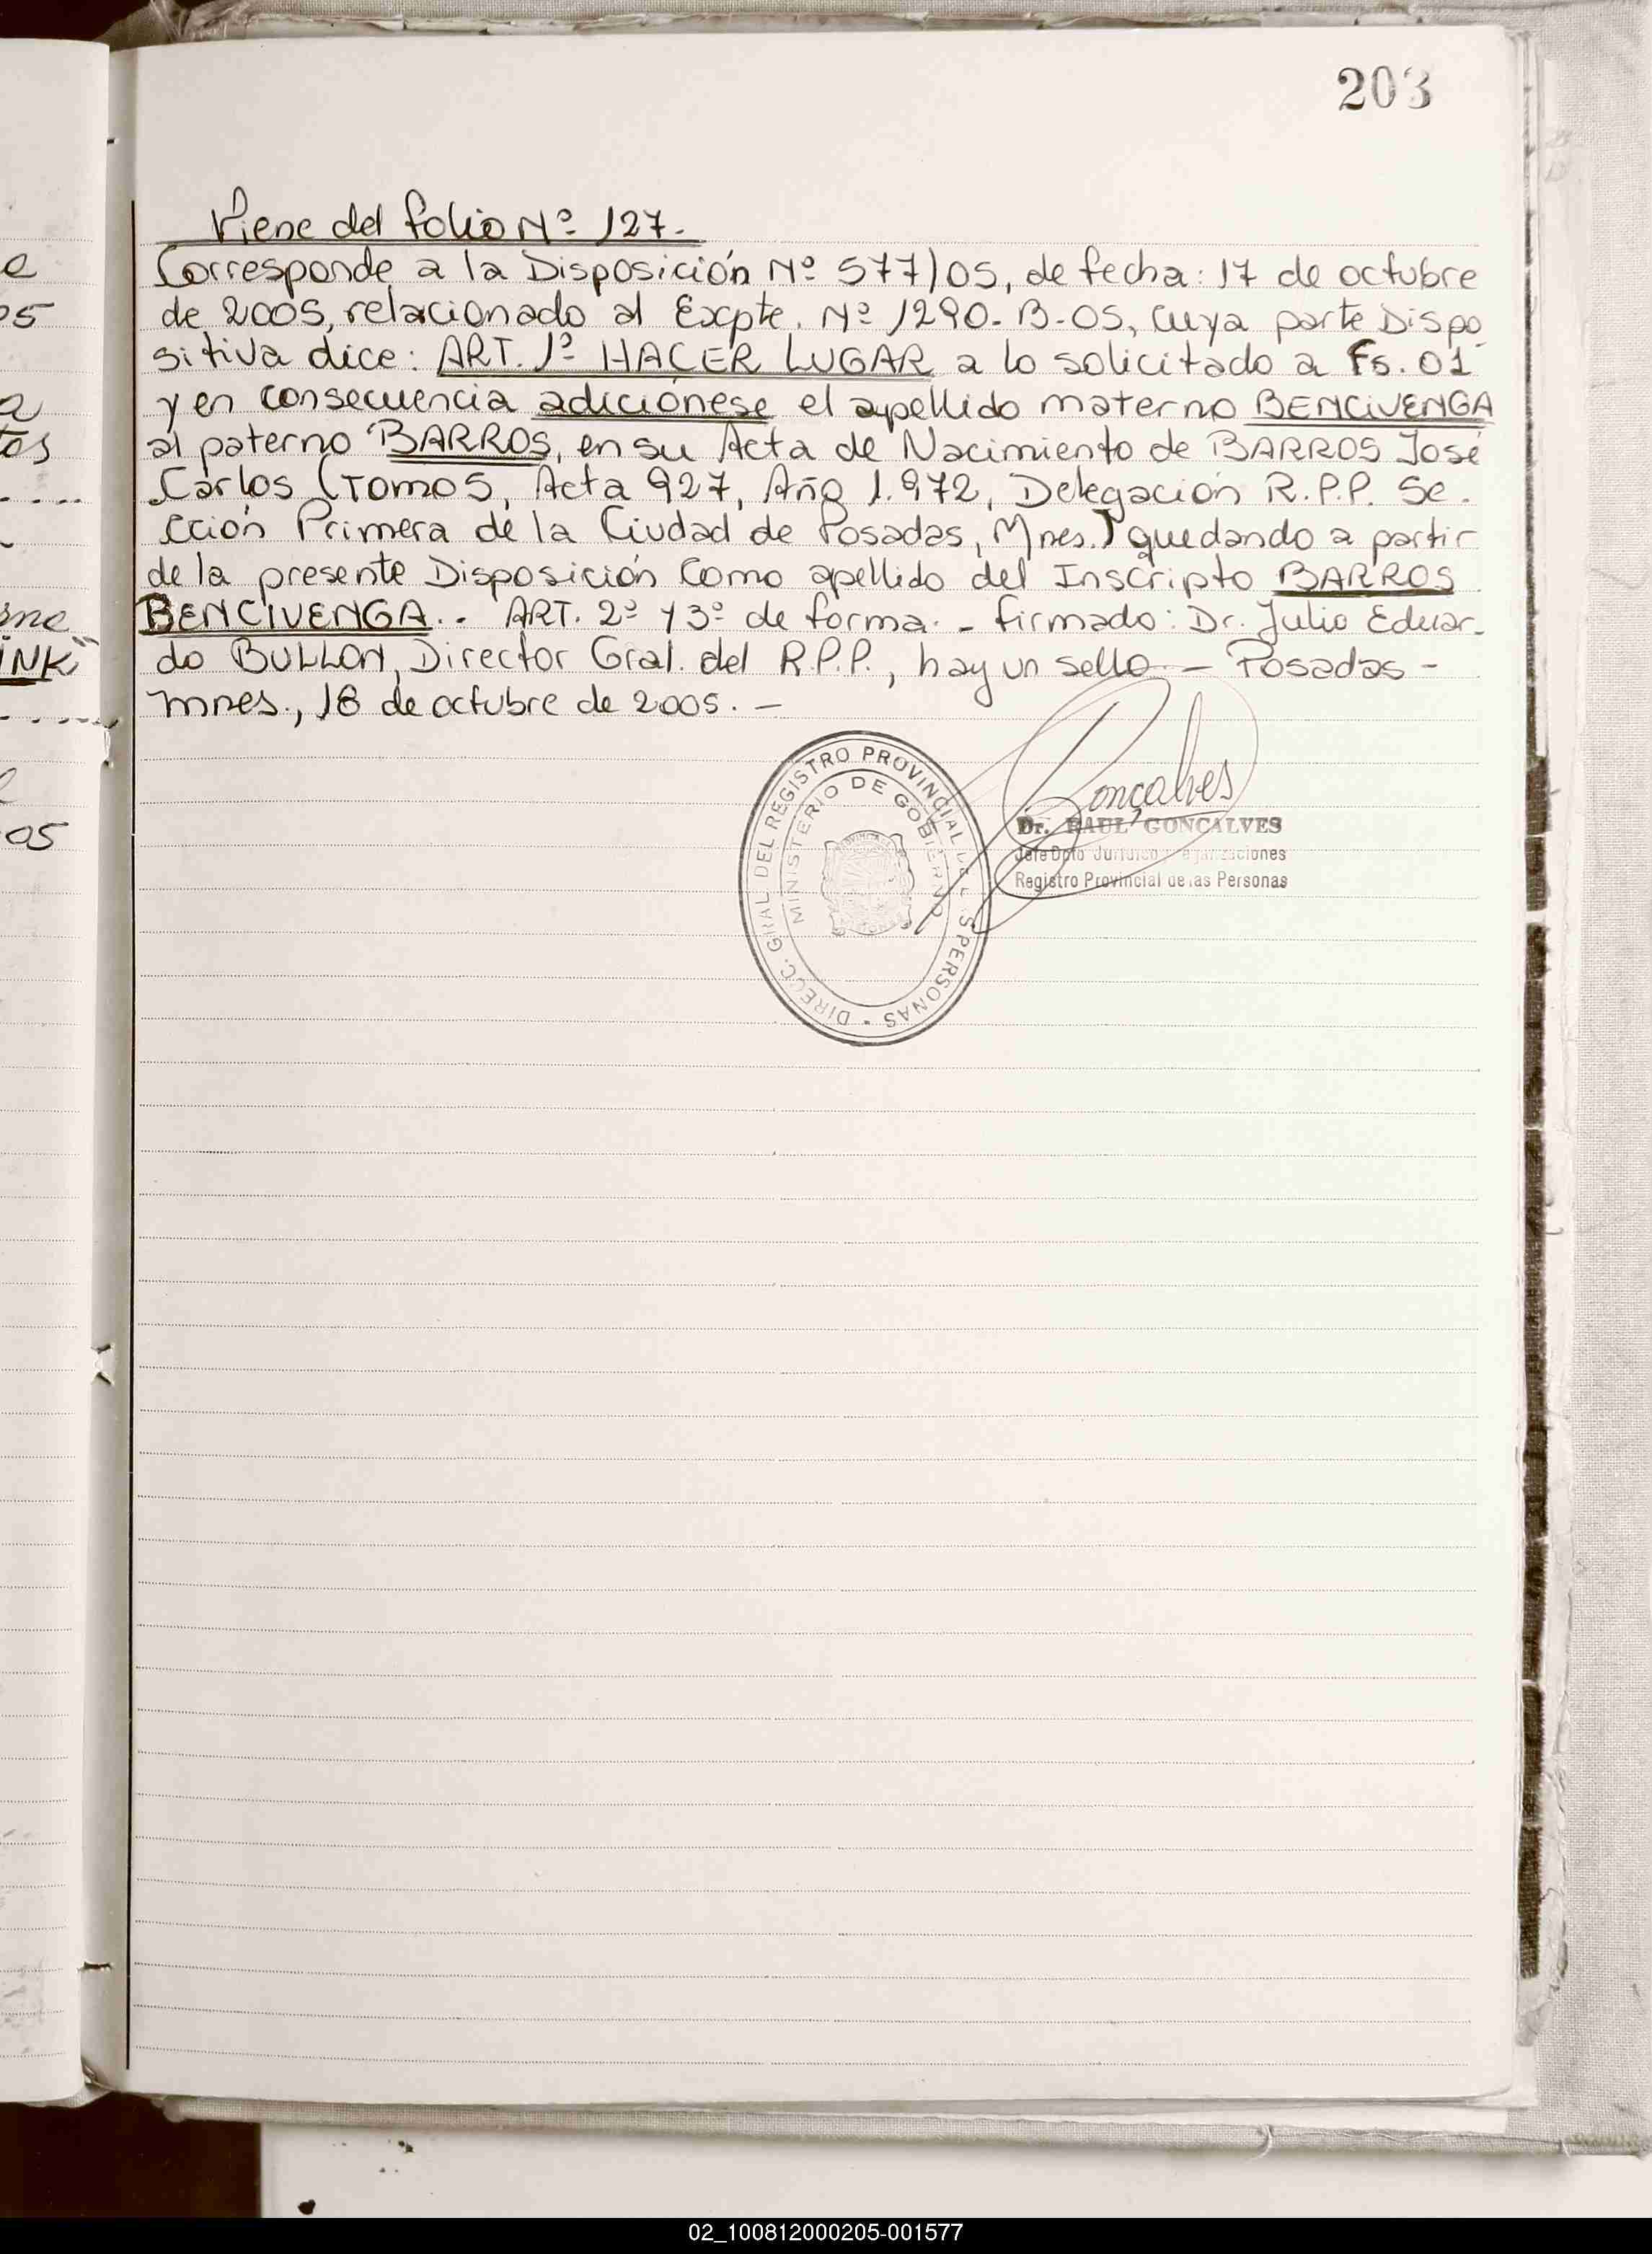 203
Viene del folio Nº 127.-
Corresponde a la Disposición Nº 577/05, de fecha: 17 de octubre
de 2005, relacionado al Expte. Nº 1290-B-05, cuya parte Dispo
sitiva dice: ART. 1º HACER LUGAR a lo solicitado a Fs. 01
y en consecuencia adiciónese el apellido materno BENCIVENGA
al paterno BARROS, en su Acta de Nacimiento de BARROS José
Carlos (Tomo 5, Acta 927, Año 1.972, Delegación R.P.P. Se-
cción Primera de la Ciudad de Posadas, Mnes.) quedando a partir
de la presente Disposición como apellido del Inscripto BARROS
BENCIVENGA.. ART. 2º y 3º de forma.- firmado: Dr. Julio Eduar-
do BULLON, Director Gral. del R.P.P., hay un sello.- Posadas -
Mnes., 18 de octubre de 2005.-
DIRECC. GRAL DEL REGISTRO PROVINCIAL DE L S PERSONAS
MINISTERIO DE GOBIERNO
Gonçalves
Dr. RAUL GONÇALVES
Jefe Dpto Jurídico
Registro Provincial de las Personas
e
05
a
tos
me
INK
05
02_100812000205-001577